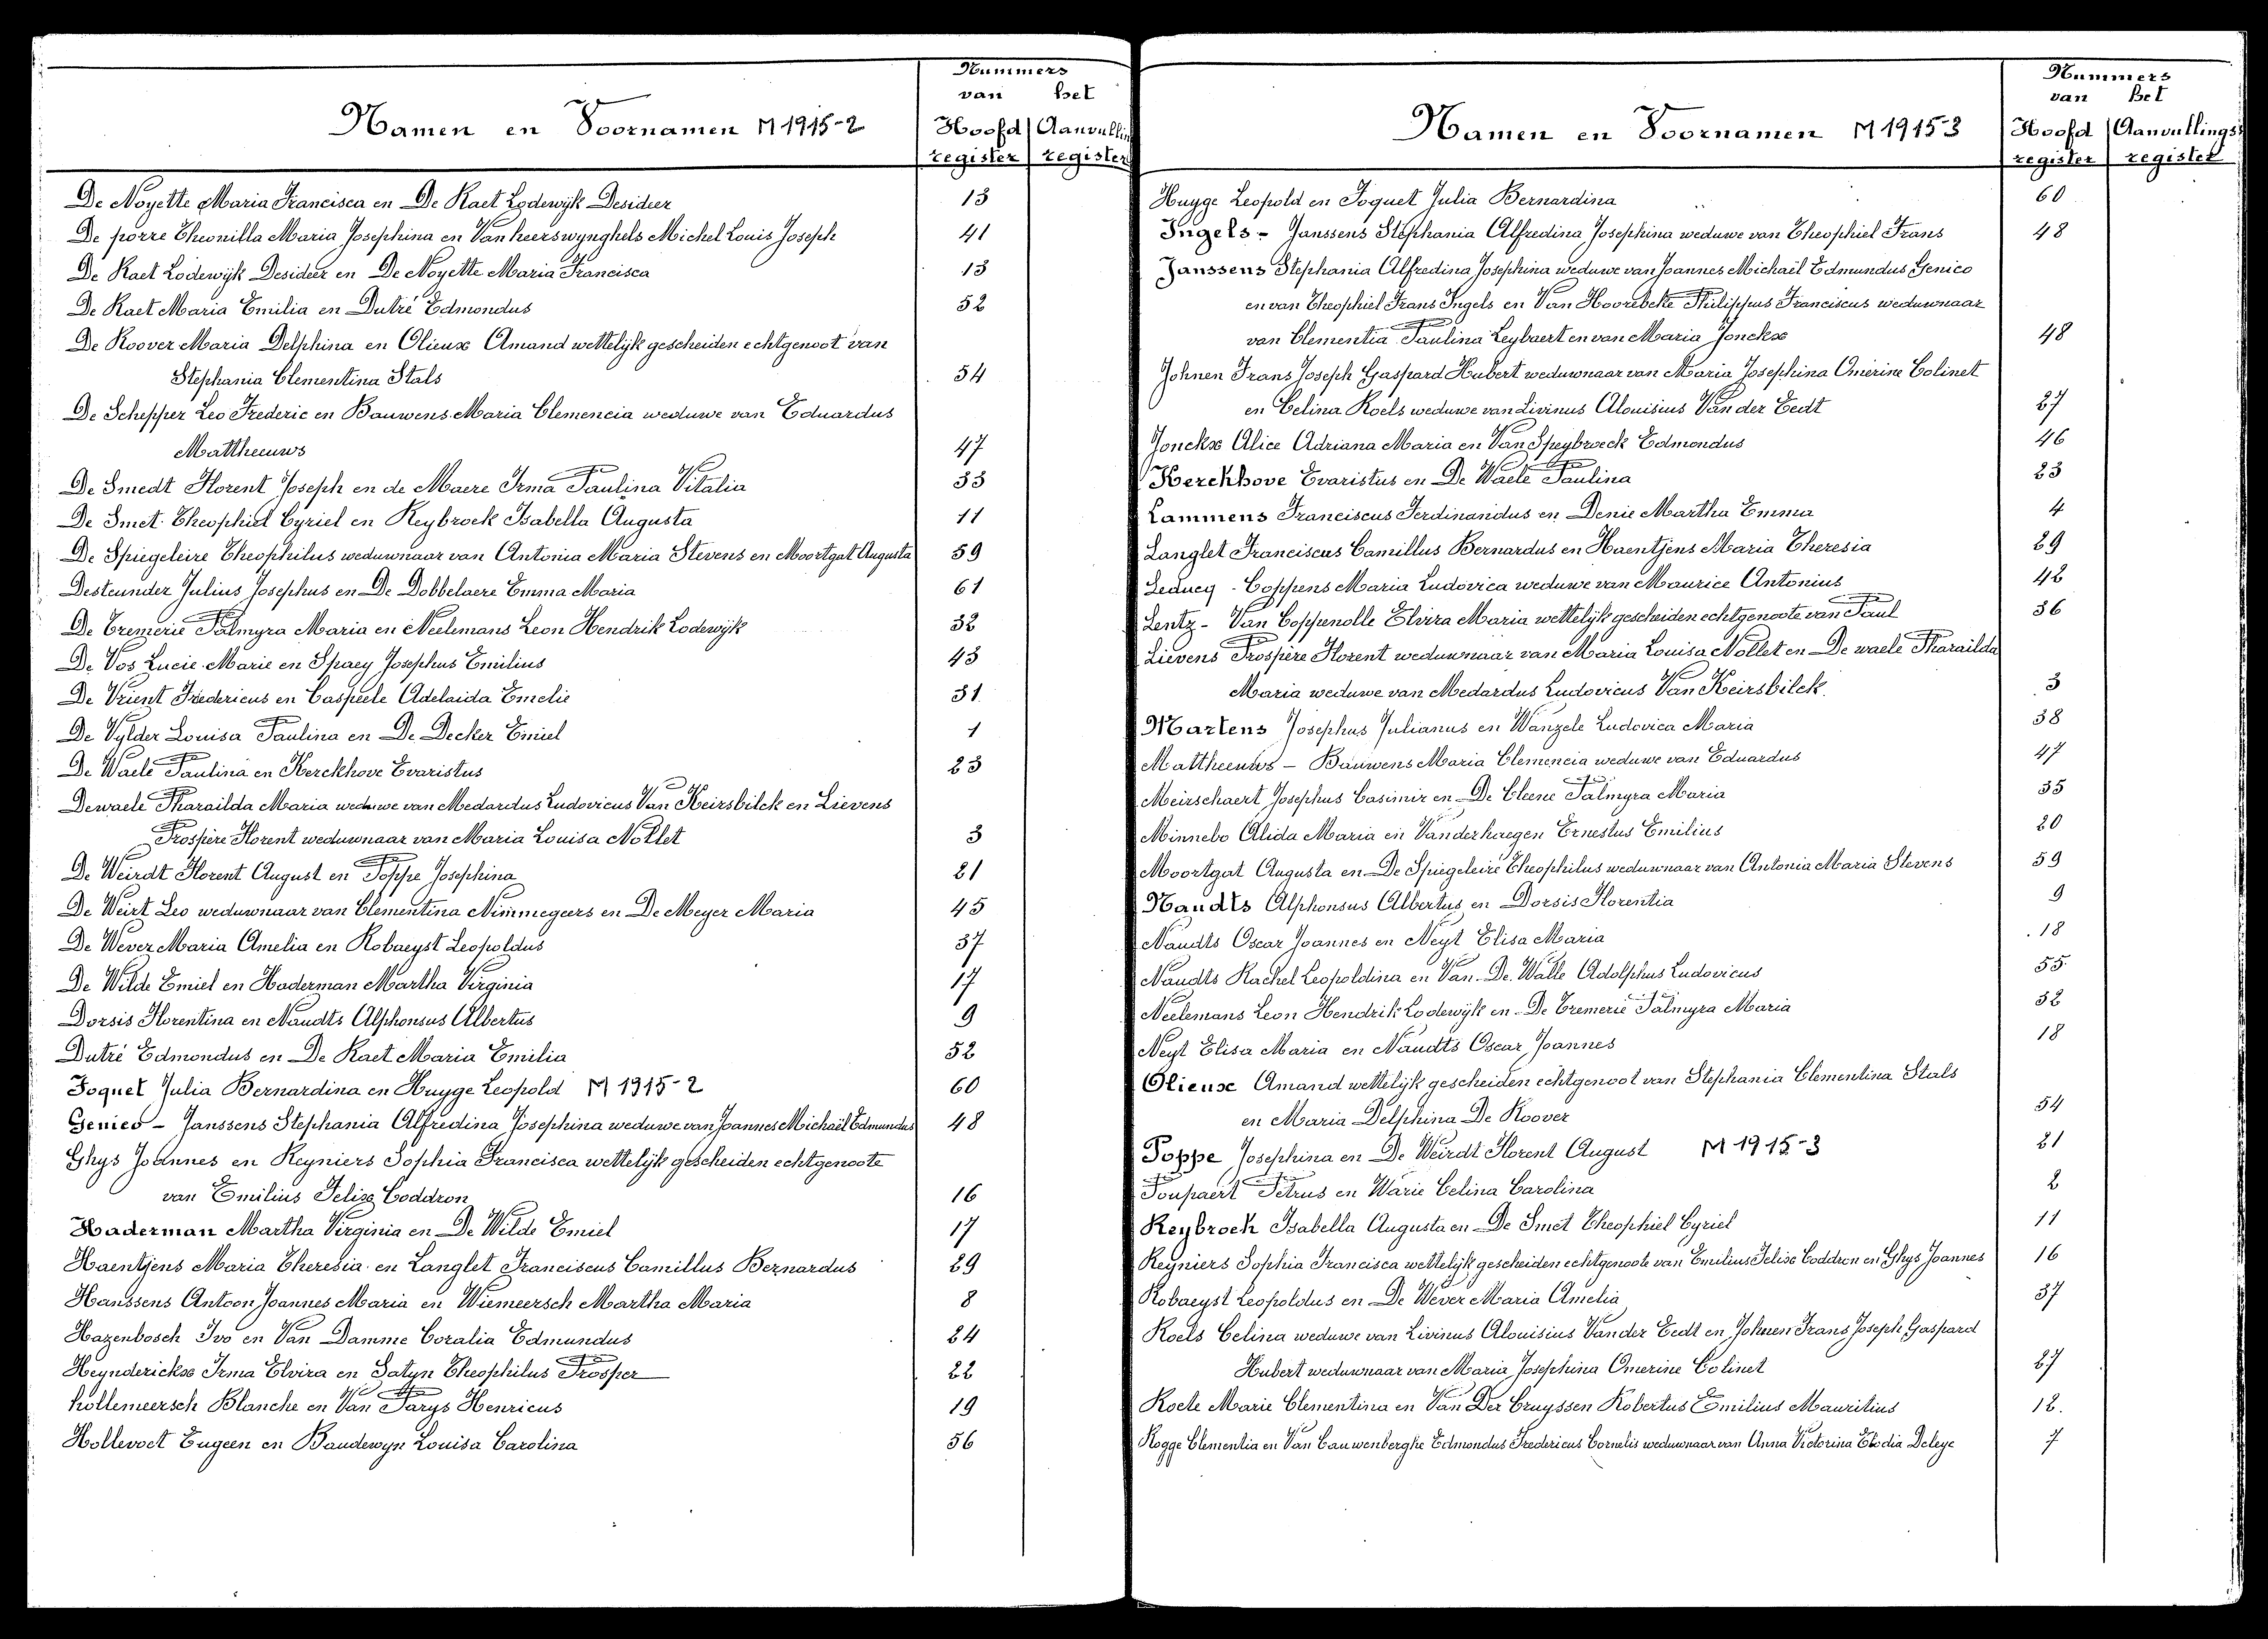 Namen en Voornamen M 1915-2
Nummers
van het
Hoofd Aanvullin
register register
De Noyette Maria Francisca en De Raet Lodewijk Desideer 13
De porre Theonilla Maria Josephina en Vanheerswynghels Michel Louis Joseph 41
De Raet Lodewijk Desideer en De Noyette Maria Francisca 13
De Raet Maria Emilia en Dutré Edmondus 52
De Roover Maria Delphina en Olieux Amand wettelijk gescheiden echtgenoot van
Stephania Clementina Stals 54
De Schepper Leo Frederic en Bauwens Maria Clemencia weduwe van Eduardus
Mattheeuws 47
De Smedt Florent Joseph en de Maere Irma Paulina Vitalia 33
De Smet Theophiel Cyriel en Reybroek Isabella Augusta 11
De Spiegeleire Theophilus weduwnaar van Antonia Maria Stevens en Moortgat Augusta 59
Desteunder Julius Josephus en De Dobbelaere Emma Maria 61
De Tremerie Palmyra Maria en Neelemans Leon Hendrik Lodewijk 32
De Vos Lucie Marie en Spaey Josephus Emilius 43
De Vrient Fredericus en Caspeele Adelaida Emelie 31
De Vylder Louisa Paulina en De Decker Emiel 1
De Waele Paulina en Kerckhove Evaristus 23
Dewaele Pharailda Maria weduwe van Medardus Ludovicus Van Keirsbilck en Lievens
Prospère Florent weduwnaar van Maria Louisa Nollet 3
De Weirdt Florent August en Poppe Josephina 21
De Weirt Leo weduwnaar van Clementina Nimmegeers en De Meyer Maria 45
De Wever Maria Amelia en Robaeyst Leopoldus 37
De Wilde Emiel en Haderman Martha Virginia 17
Dorsis Florentina en Naudts Alphonsus Albertus 9
Dutré Edmondus en De Raet Maria Emilia 52
Foquet Julia Bernardina en Huyge Leopold M 1915-2 60
Genico - Janssens Stephania Alfredina Josephina weduwe van Joannes Michaël Edmundus 48
Ghys Joannes en Reyniers Sophia Francisca wettelijk gescheiden echtgenoote
van Emilius Felix Coddron 16
Haderman Martha Virginia en De Wilde Emiel 17
Haentjens Maria Theresia en Langlet Franciscus Camillus Bernardus 29
Hanssens Antoon Joannes Maria en Wiemeersch Martha Maria 8
Hazenbosch Ivo en Van Damme Coralia Edmundus 24
Heynderickx Irma Elvira en Satyn Theophilus Prosper 22
hollemeersch Blanche en Van Parys Henricus 19
Hollevoet Eugeen en Baudewyn Louisa Carolina 56
Namen en Voornamen M 1915-3
Nummers
van het
Hoofd Aanvullings
register register
Huyge Leopold en Foquet Julia Bernardina 60
Ingels - Janssens Stephania Alfredina Josephina weduwe van Theophiel Frans 48
Janssens Stephania Alfredina Josephina weduwe van Joannes Michaël Edmundus Genico
en van Theophiel Frans Ingels en Van Hoorebeke Philippus Franciscus weduwnaar
van Clementia Paulina Leybaert en van Maria Jonckx 48
Johnen Frans Joseph Gaspard Hubert weduwnaar van Maria Josephina Omerine Colinet
en Celina Roels weduwe van Livinus Alouisius Van der Eedt 27
Jonckx Alice Adriana Maria en Van Speybroeck Edmondus 46
Kerckhove Evaristus en De Waele Paulina 23
Lammens Franciscus Ferdinandus en Denie Martha Emma 4
Langlet Franciscus Camillus Bernardus en Haentjens Maria Theresia 29
Leducq - Coppens Maria Ludovica weduwe van Maurice Antonius 42
Lentz - Van Coppenolle Elvira Maria wettelijk gescheiden echtgenoote van Paul 36
Lievens Prospère Florent weduwnaar van Maria Louisa Nollet en De waele Pharailda
Maria weduwe van Medardus Ludovicus Van Keirsbilck 3
Martens Josephus Julianus en Wanzele Ludovica Maria 38
Mattheeuws - Bauwens Maria Clemencia weduwe van Eduardus 47
Meirschaert Josephus Casimir en De Cleene Palmyra Maria 35
Minnebo Alida Maria en Vanderhaegen Ernestus Emilius 20
Moortgat Augusta en De Spiegeleire Theophilus weduwnaar van Antonia Maria Stevens 59
Naudts Alphonsus Albertus en Dorsis Florentia 9
Naudts Oscar Joannes en Neyt Elisa Maria 18
Naudts Rachel Leopoldina en Van De Walle Adolphus Ludovicus 55
Neelemans Leon Hendrik Lodewijk en De Tremerie Palmyra Maria 32
Neyt Elisa Maria en Naudts Oscar Joannes 18
Olieux Amand wettelijk gescheiden echtgenoot van Stephania Clementina Stals
en Maria Delphina De Roover 54
Poppe Josephina en De Weirdt Florent August M 1915-3 21
Poupaert Petrus en Warie Celina Carolina 2
Reybroek Isabella Augusta en De Smet Theophiel Cyriel 11
Reyniers Sophia Francisca wettelijk gescheiden echtgenoote van Emilius Felix Coddron en Ghys Joannes 16
Robaeyst Leopoldus en De Wever Maria Amelia 37
Roels Celina weduwe van Livinus Alouisius Vander Eedt en Johnen Frans Joseph Gaspard
Hubert weduwnaar van Maria Josephina Omerine Colinet 27
Roele Marie Clementina en Van Der Cruyssen Robertus Emilius Mauritius 12.
Rogge Clementia en Van Cauwenberghe Edmondus Fredericus Cornelis weduwnaar van Anna Victorina Elodia Deleye 7